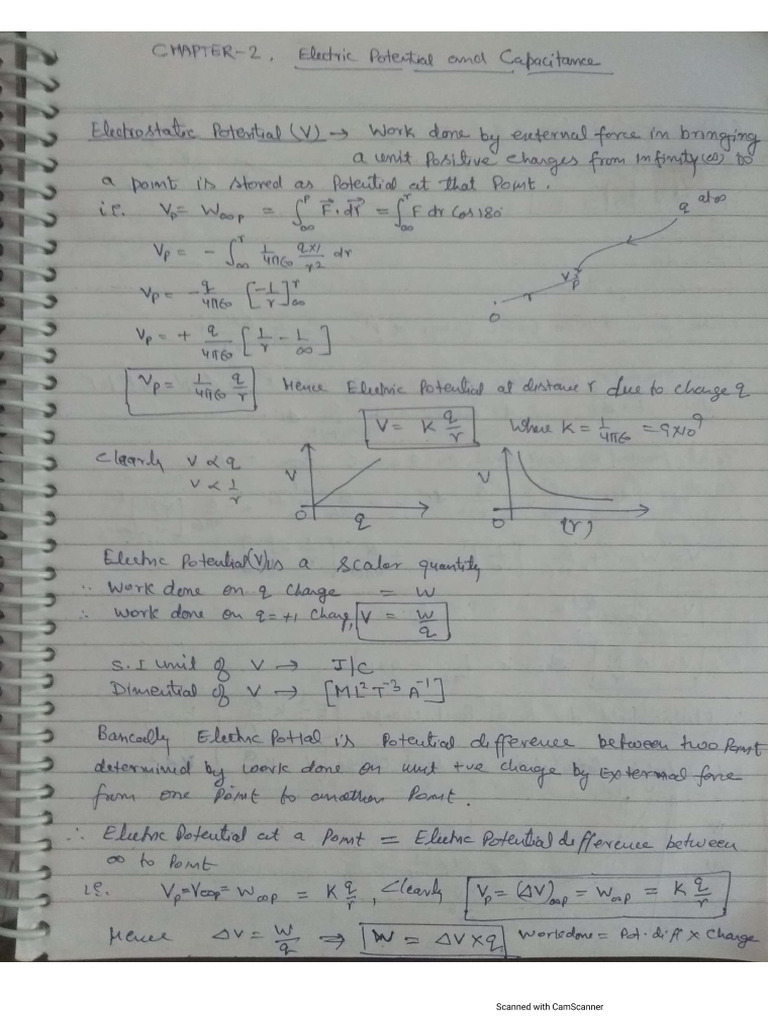 CHAPTER-2, Electric Potential and Capacitance
Electrostatic Potential (V) → Work done by external force in bringing
a unit Positive charges from infinity(∞) to
a point is stored as Potential at that Point.
i.e. Vp = W∞p = ∫∞^p F⃗.dr⃗ = ∫∞^r F dr cos180
q at ∞
Vp = - ∫∞^r 1/4π∈₀ q×1/r² dr
Vp = -q/4π∈₀ [-1/r]∞^r
Vp
r
O
Vp = + q/4π∈₀ [1/r - 1/∞]
Vp = 1/4π∈₀ q/r Hence Electric Potential at distance r due to charge q
V = K q/r where K = 1/4π∈₀ = 9×10⁹
Clearly V ∝ q
V ∝ 1/r
V
O
q
V
O
(r)
Electric Potential(V) is a Scalar quantity
∵ Work done on q charge = W
∴ Work done on q=+1 charg, V = W/q
S.I unit of V → J/C
Dimential of V → [ML²T⁻³A⁻¹]
Electric Potial is Potential difference between two Point
determined by work done on unit +ve charge by External force
from one Point to another Point.
∴ Electric Potential at a Point = Electric Potential difference between
∞ to Point
ie. Vp=V∞p=W∞p = K q/r, Clearly Vp = (ΔV)∞p = W∞p = K q/r
Hence ΔV = W/q ⇒ W = ΔV×q Workdone = Pot. diff × Charge
Scanned with CamScanner